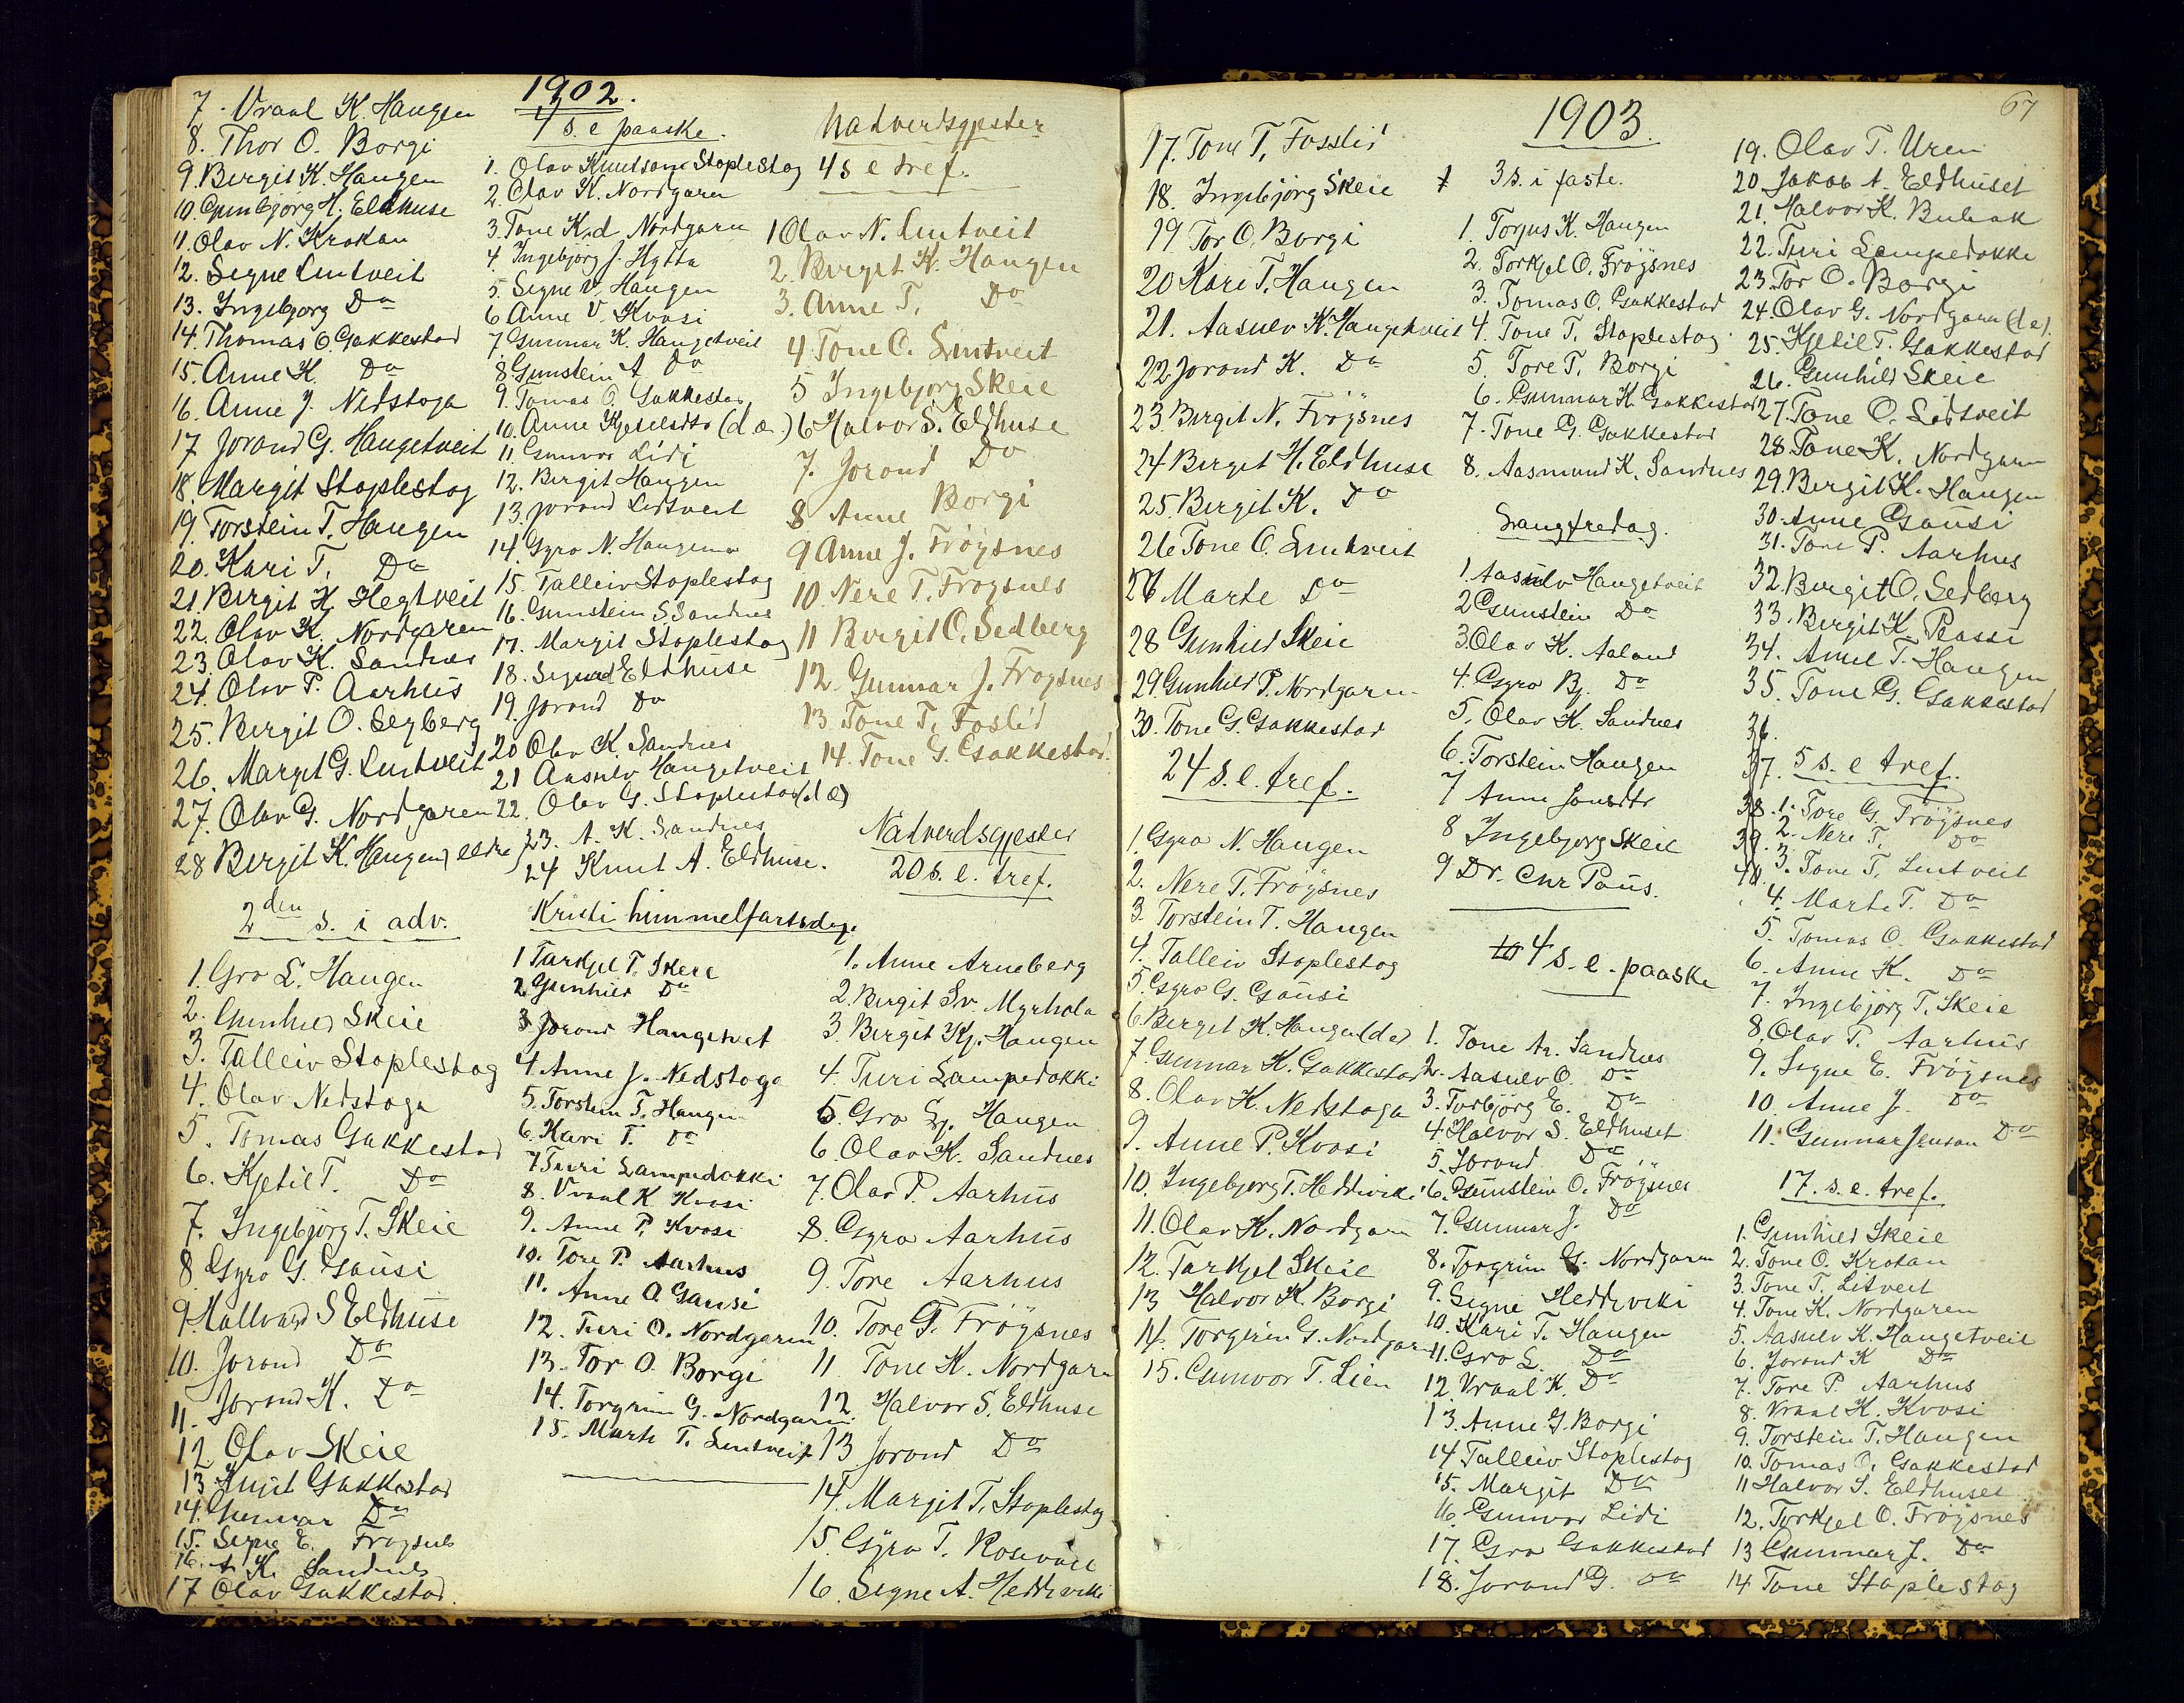 7. Vraal K. Haugen
8. Thor O. Borgi
9. Bergit K. Haugen
10. Gunbjørg H. Eldhuse
11. Olav N. Krokan
12. Segne Lintveit
13. Ingebjørg Do
14. Thomas O. Gakkestad
15. Anne K. Do
16. Anne J. Nedstoga
17 Jorand G. Haugetveit
18. Margit Staplestog
19. Torstein T. Haugen
20. Kari T. Do
21. Birgit K. Hegtveit
22. Olav K. Nordgaren
23. Olav K. Sandnes
24. Olav P. Aarhus
25. Bergit O. Segberg
26. Margit G. Lintveit
27. Olav G. Nordgaren
28 Bergit K. Haugen, eldre
2den s. i adv.
1. Gro L. Haugen
2. Gunhild Skeie
3. Talleiv Staplestog
4. Olav Nedstoga
5. Tomas Gakkestad
6. Kjetil T. Do
7. Ingebjörg T. Skeie
8 Gyro G. Gausi
9. Hallvard S Eldhuse
10. Jorand Do
11. Jorand K. Do
12. Olav Skeie
13 Knut Gakkestad
14. Gunnar Do
15. Segne E. Frøysnes
16. A. K. Sandnes
17 Olav Gakkestad.
1902.
4 s. e paaske.
1. Olav Knutson Staplestog
2. Olav K. Nordgaren
3. Tone K.d. Nordgaren
4. Ingebjörg J. Hytta
5. Segne V. Haugen
6 Anne V. Kvosi
7 Gunnar K. Haugetveit
8 Gunstein A Do
9. Tomas O. Gakkestad
10. Anne Kjetilsdtr (d æ.)
11. Gunvor Lidi
12. Bergit Haugen
13. Jorand Lidtveit
14. Gyro N. Haugen
15. Talleiv Staplestog
16. Gunstein S Sandnes
17. Margit Staplestog
18. Sigurd Eldhuse
19. Jorand Do
20 Olav K Sandnes
21 Aasulv Haugetveit
22. Olav G. Staplestog (d æ)
23. A. K. Sandnes
24 Knut A. Eldhuse.
Kristi himmelfartsdag.
1 Tarkjel T. Skeie
2 Gunhild Do
3 Jorand Haugetveit
4. Anne J. Nedstoga
5. Torstein T. Haugen
6. Kari T. Do
7 Turi Lampedokki
8. Vraal K Kvosi
9. Anne P. Kvosi
10. Tore P. Aarhus
11. Anne O. Gausi
12. Turi O. Nordgaren
13. Tor O. Borgi
14. Torgrim G. Nordgaren
15. Marte T. Lintveit
Natverdsgjester
4 s e tref.
1 Olav N. Lintveit
2. Birgit K. Haugen
3. Anne T. Do
4 Tone O. Lintveit
5 Ingebjorg Skeie
6 Halvor S. Eldhuse
7. Jorand Do
8 Anne Borgi
9 Anne J. Frøysnes
10 Nere T. Frøysnes
11 Birgit O. Sedberg
12. Gunnar J. Frøysnes
13 Tone T. Foslid
14. Tone G. Gakkestad.
Natverdsgjester
20 s. e. tref.
1. Anne Arneberg
2. Bergit Sv. Myrhola
3. Bergit Kj. Haugen
4. Turi Lampedokki
5. Gro Lj. Haugen
6. Olav K. Sandnes
7. Olav P. Aarhus
8. Gyro Aarhus
9. Tore Aarhus
10. Tore G. Frøysnes
11 Tone K. Nordgaren
12 Halvor S. Eldhuse
13 Jorand Do
14. Margit T. Staplestog
15. Gyro T. Rosvoll
16. Segne A. Heddeviki
17. Tone T. Fosslid
18. Ingebjörg Skeie
19 Tor O. Borgi
20 Kari T. Haugen
21. Aasulv K. Haugetveit
22 Jorand K. Do
23. Birgit N. Frøysnes
24 Bergit H. Eldhuse
25. Bergit K. Do
26 Tone O. Lintveit
27 Marte Do
28 Gunhild Skeie
29 Gunhild P. Nordgaren
30. Tone G. Gakkestad
24 s. e. tref.
1. Gyro N. Haugen
2. Nere T. Frøysnes
3. Torstein T. Haugen
4. Talleiv Staplestog
5. Gyro G. Gausi
6. Bergit K. Haugen (d e)
7. Gunnar K. Gakkestad
8. Olav K. Nedstoga
9. Anne P. Kvosi
10. Ingebjorg T. Heddeviki
11. Olav K. Nordgaren
12. Tarkjel Skeie
13 Halvor K. Borgi
14. Torgrim G. Nordgaren
15. Gunvor T. Lien
1903.
3 s. i faste.
1. Torjus K. Haugen
2. Torkjel O. Frøysnes
3. Tomas O. Gakkestad
4. Tone T. Staplestog
5. Tore T. Borgi
6. Gunnar K. Gakkestad
7. Tone G. Gakkestad
8. Aasmund K. Sandnes
Langfredag.
1. Aasulv Haugetveit
2 Gunstein Do
3. Olav K. Aaland
4. Gyro Bj. Do
5. Olav K. Sandnes
6. Torstein Haugen
7 Anne Jonsdtr
8 Ingebjorg Skeie
9 Dr. Chr Paus.
4 s. e. paaske
1. Tone Ar. Sandnes
2. Aasulv O. Do
3. Torbjörg E. Do
4. Halvor S. Eldhuset
5. Jorand Do
6. Gunstein O. Frøysnes
7. Gunnar J. Do
8. Torgrim G. Nordgaren
9. Segne Heddeviki
10. Kari T. Haugen
11. Gro L. Do
12. Vraal K. Do
13. Anne G. Borgi
14 Talleiv Staplestog
15. Margit Do
16. Gunvor Lidi
17. Gro Gakkestad
18. Jorand G. Do
67
19. Olav T. Uren
20. Jakob A. Eldhuset
21. Halvor K. Bubak
22. Turi Lampedokki
23. Tor O. Borgi
24. Olav G. Nordgaren (d e).
25. Kjetil T. Gakkestad
26. Gunhild Skeie
27. Tone O. Lidtveit
28. Tone K. Nordgaren
29. Bergit K. Haugen
30. Anne Gausi
31. Tore P. Aarhus
32. Bergit O. Sedberg
33. Bergit K. Plassi
34. Anne T. Haugen
35. Tone G. Gakkestad
36.
37. 5 s. e tref.
38. 1. Tore G. Frøysnes
39. 2. Nere T. Do
40. 3. Tone T. Lintveit
4. Marte T. Do
5. Tomas O. Gakkestad
6. Anne K. Do
7. Ingebjörg T. Skeie
8. Olav P. Aarhus
9. Segne E. Frøysnes
10. Anne J. Do
11. Gunnar Jenson Do
17. s. e. tref.
1. Gunhild Skeie
2. Tone O. Krokan
3. Tone T. Litveit
4. Tone K. Nordgaren
5. Aasulv K. Haugetveit
6. Jorand K Do
7. Tore P. Aarhus
8. Vraal K. Kvosi
9. Torstein T. Haugen
10. Tomas O. Gakkestad
11 Halvor S. Eldhuset
12. Torkjel O. Frøysnes
13 Gunnar J. Do
14 Tone Staplestog